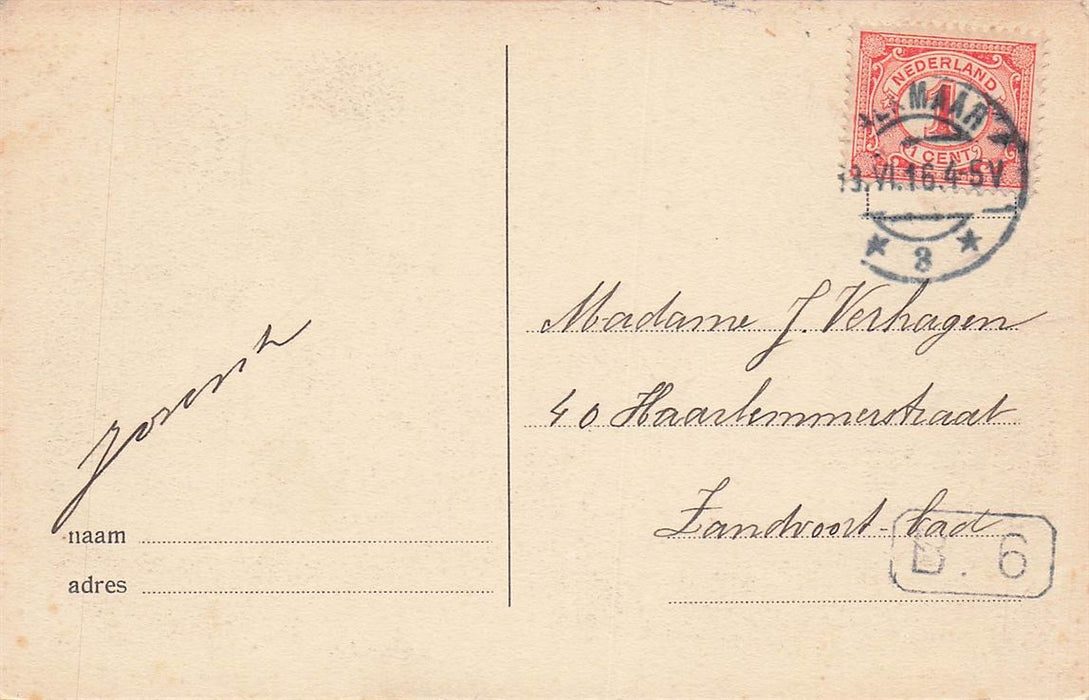 NEDERLAND
1
1 CENT
ALKMAAR
13.VI.16.4-5V
3
Madame J. Verhagen
40 Haarlemmerstraat
Zandvoort-bad
B. 6
naam
adres